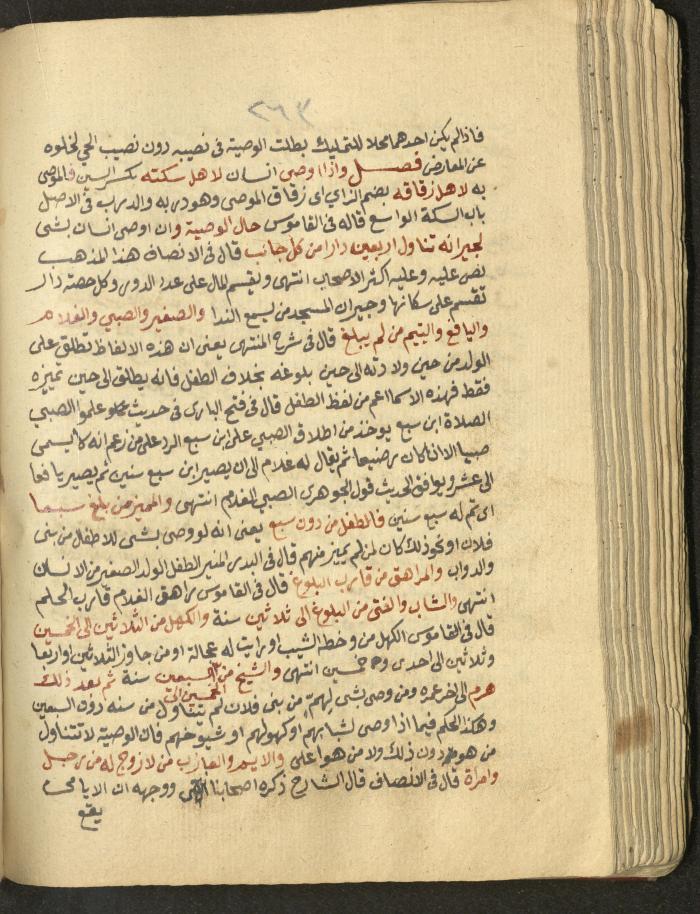 ٢٦٣
فاذا لم يكن احدهما محلا للتمليك بطلت الوصية في نصيبه دون نصيب الحي لخلوه
عن المعارض فصل واذا اوصى انسان لاهل سكته بكسر السين فالموصى
به لاهل زقاقه بضم الزاي اي زقاق الموصي وهو دربه والدرب في الاصل
باب السكة الواسع قاله في القاموس حال الوصية وان اوصى انسان بشي
لجيرانه تناول اربعين دارا من كل جانب قال في الانصاف هذا المذهب
نص عليه وعليه اكثر الاصحاب انتهى ويقسم المال على عدد الدور وكل حصة دار
تقسم على سكانها وجيران المسجد من يسمع الندا والصغير والصبي والغلام
واليافع واليتيم من لم يبلغ قال في شرح المنتهى يعني ان هذه الالفاظ تطلق على
الولد من حين ولادته الى حين بلوغه بخلاف الطفل فانه يطلق الى حين تمييزه
فقط فهذه الاسما اعم من لفظ الطفل قال في فتح الباري في حديث علموا الصبي
الصلاة ابن سبع يوخذ من اطلاق الصبي على ابن سبع الرد على من زعم انه لا يسمى
صبيا الا اذا كان رضيعا ثم يقال له غلام الى ان يصير ابن سبع سنين ثم يصير يافعا
الى عشر ويوافق الحديث قول الجوهري الصبي الغلام انتهى والمميز من بلغ سبعا
اي تم له سبع سنين فالطفل من دون سبع يعني انه لو وصى بشي للاطفال من بني
فلان او نحو ذلك كان لمن لم يميز منهم قال في البدر المنير الطفل الولد الصغير من الانسان
والدواب والمراهق من قارب البلوغ قال في القاموس راهق الغلام قارب الحلم
انتهى والشاب والفتى من البلوغ الى ثلاثين سنة والكهل من الثلاثين الى الخمسين
قال في القاموس الكهل من وخطه الشيب او رايت له بجالة او من جاوز الثلاثين او اربعا
وثلاثين الى احدى وخمسين انتهى والشيخ من الخمسين الى السبعين سنة ثم بعد ذلك
هرم الى اخر عمره ومن وصى بشي لهرم من بني فلان لم يتناول من سنه دون السبعين
وهكذا الحكم فيما اذا وصى لشبابهم او كهولهم او شيوخهم فان الوصية لا تتناول
من هو دون ذلك ولا من هو اعلى والايم والعازب من لا زوج له من رجل
وامراة قال في الانصاف قال الشارح ذكره اصحابنا انتهى ووجهه ان الايامى
يقع